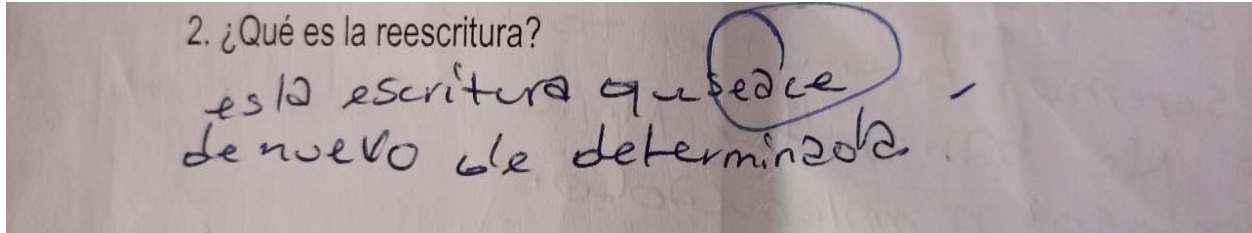 2. ¿Qué es la reescritura?
es la escritura que seace
de nuevo de determinada.